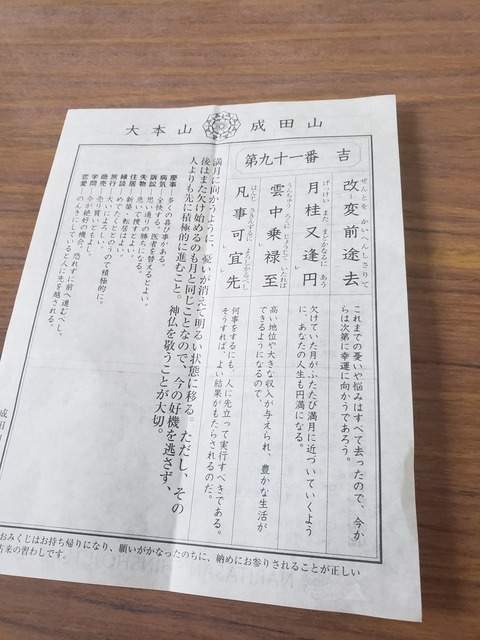 大本山 成田山
第九十一番 吉
改変前途去
これまでの憂いや悩みはすべて去ったので、今か
らは次第に幸運に向かうであろう。
月桂又逢円
欠けていた月がふたたび満月に近づいていくよう
に、あなたの人生も円満になる。
雲中乗禄至
高い地位や大きな収入が与えられ、豊かな生活が
できるようになるので、
凡事可宜先
何事をするにも、人に先立って実行すべきである。
そうすれば、よい結果がもたらされるのだ。
満月に向かうように、憂いが消えて明るい状態に移る。ただし、その
後はまた欠け始めるのも月と同じことなので、今の好機を逃さず、
人よりも先に積極的に進むこと。神仏を敬うことが大切。
慶事 多くの喜び事がある。
病気 全快する。医者を替えるとよい。
訴訟 思い通りの勝ちになる。
失物 急いで捜すとよい。
住居 新築・転居はよい。
縁談 めでたくととのう。
旅行 大いによしなので積極的に。
商売 売り買いともよし。
学問 今が絶好の機会。恐れずに前へ進むべし。
恋愛 のん気にしていると人に先を越される。
成田山
おみくじはお持ち帰りになり、願いがかなったのちに、納めにお参りされることが正しい
古来の習わしです。